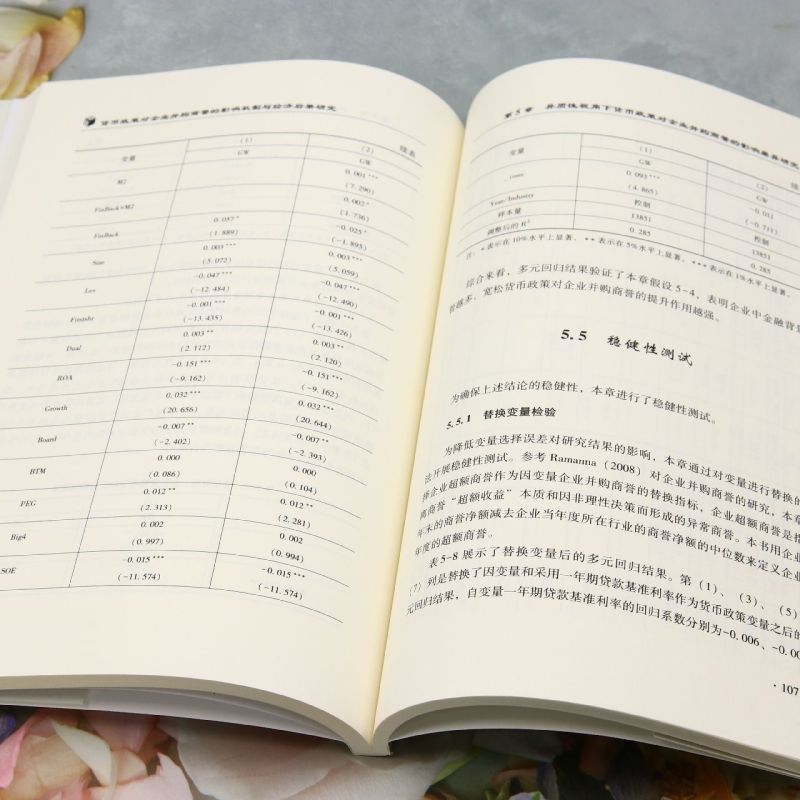 货币政策对企业并购商誉的影响机制与经济后果研究
续表
变量 (1) (2)
GW GW
M2 0.001***
(7.290)
FinBack×M2 0.002*
(1.736)
FinBack 0.037* -0.025*
(1.889) (-1.895)
Size 0.003*** 0.003***
(5.072) (5.059)
Lev -0.047*** -0.047***
(-12.484) (-12.490)
Firstshr -0.001*** -0.001***
(-13.435) (-13.426)
Dual 0.003** 0.003**
(2.112) (2.120)
ROA -0.151*** -0.151***
(-9.162) (-9.162)
Growth 0.032*** 0.032***
(20.656) (20.644)
Board -0.007** -0.007**
(-2.402) (-2.393)
BTM 0.000 0.000
(0.086) (0.104)
PEG 0.012** 0.012**
(2.313) (2.281)
Big4 0.002 0.002
(0.997) (0.994)
SOE -0.015*** -0.015***
(-11.574) (-11.574)
第5章 异质性视角下货币政策对企业并购商誉的影响差异研究
续
变量 (1) (2)
GW GW
_cons 0.093*** -0.011
(4.865) (-0.711)
Year/Industry 控制 控制
样本量 13851 13851
调整后的R² 0.285 0.285
注:*表示在10%水平上显著,**表示在5%水平上显著,***表示在1%水平上显著。
综合来看,多元回归结果验证了本章假设5-4,表明企业中金融背
管越多,宽松货币政策对企业并购商誉的提升作用越强。
5.5 稳健性测试
为确保上述结论的稳健性,本章进行了稳健性测试。
5.5.1 替换变量检验
为降低变量选择误差对研究结果的影响,本章通过对变量进行替换的
法开展稳健性测试。参考Ramanna(2008)对企业并购商誉的研究,本章
择企业超额商誉作为因变量企业并购商誉的替换指标,企业超额商誉是指
离商誉“超额收益”本质和因非理性决策而形成的异常商誉。本书用企业
年末的商誉净额减去企业当年度所在行业的商誉净额的中位数来定义企业
年度的超额商誉。
表5-8展示了替换变量后的多元回归结果。第(1)、(3)、(5)
(7)列是替换了因变量和采用一年期贷款基准利率作为货币政策变量之后的
元回归结果,自变量一年期贷款基准利率的回归系数分别为-0.006、-0.00
·107